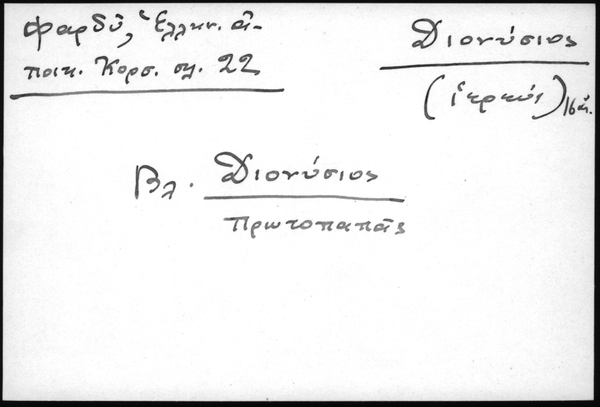 Φαρδῦ, Ἑλλην. ἀ-
ποικ. Κορσ. σελ. 22
Διονύσιος
(ἱερεύς) 16 αἰ.
Βλ. Διονύσιος
Πρωτοπαπᾶς